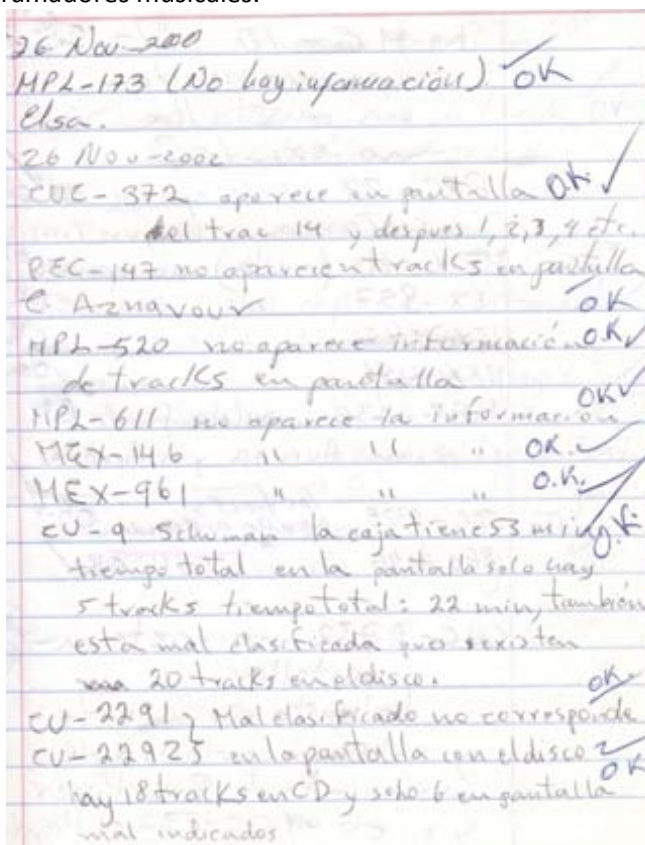 ramadores musicales.
26 Nov-2000
MPL-173 (No hay información) OK
Elsa.
26 Nov-2002
CUC-372 aparece en pantalla O.K.
del trac 14 y despues 1, 2, 3, 4 etc.
PEC-147 no aparecen tracks en pantalla
C. Aznavour OK
MPL-520 no aparece información O.K
de tracks en pantalla
MPL-611 no aparece la información OK
MEX-146 " " " OK.
MEX-961 " " " O.K.
CU-9 Schuman la caja tiene 53 min O.K.
tiempo total en la pantalla solo hay
5 tracks tiempo total: 22 min, también
esta mal clasificada pues existen
20 tracks en el disco.
OK
CU-2291 } Mal clasificado no corresponde
CU-2292 } en la pantalla con el disco
hay 18 tracks en CD y solo 6 en pantalla OK
mal indicados